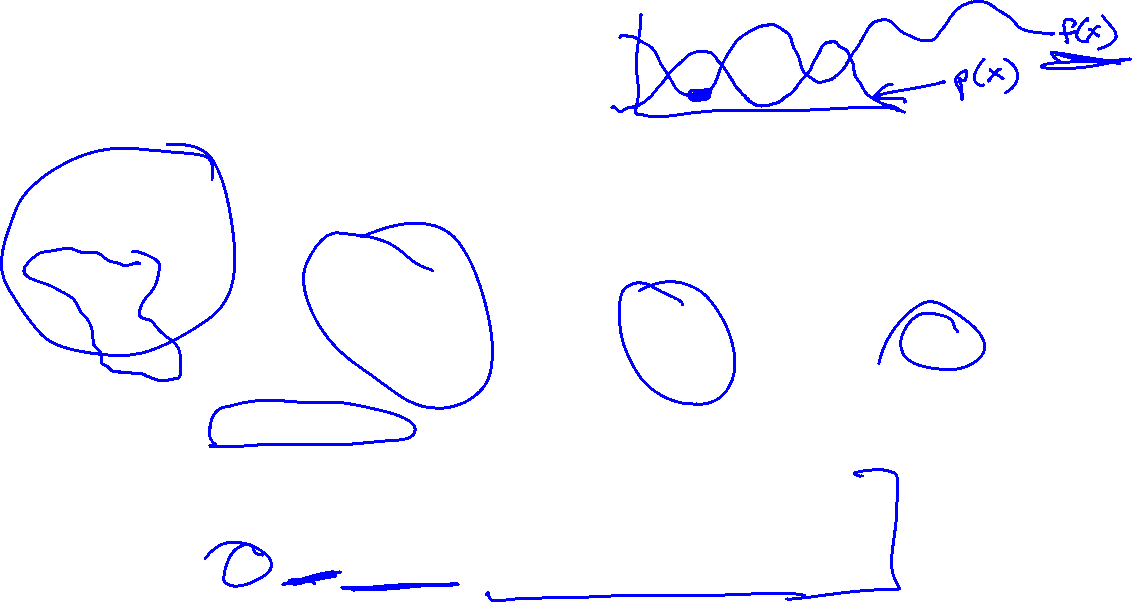 f(x)
p(x)